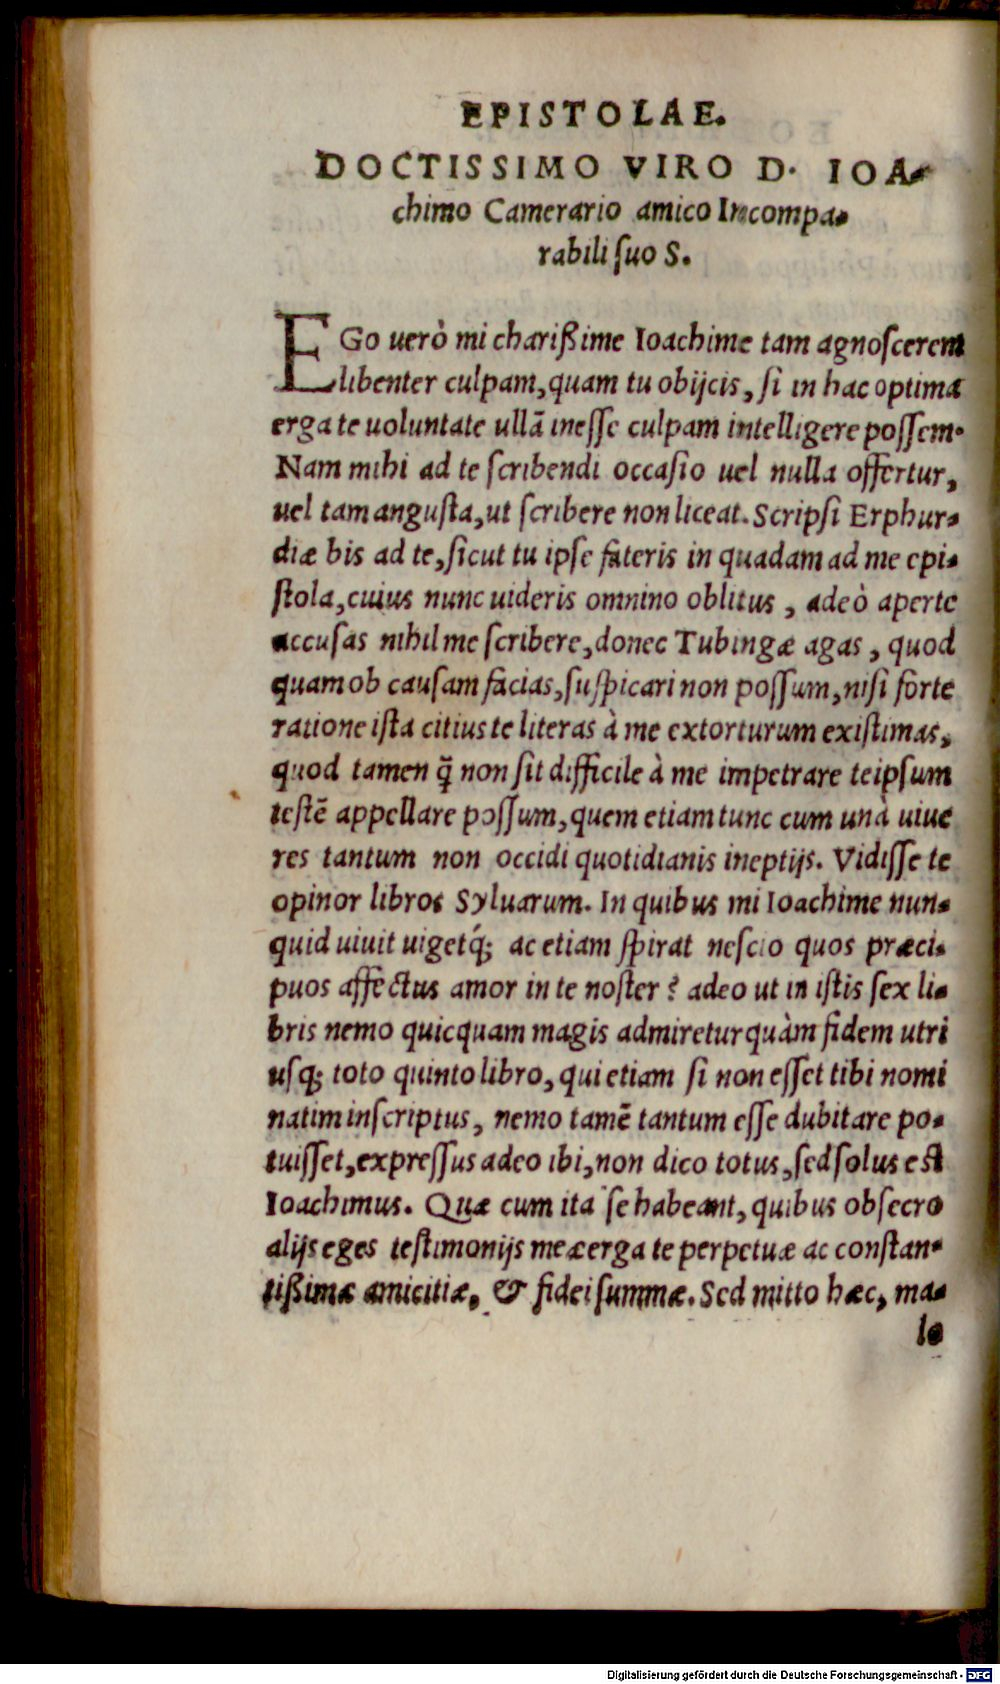 EPISTOLAE.
DOCTISSIMO VIRO D. IOA-
chimo Camerario amico Incompa-
rabili ſuo S.
EGo uerò mi charißime Ioachime tam agnoſcerem
libenter culpam, quam tu obijcis, ſi in hac optima
erga te uoluntate ullā ineſſe culpam intelligere poſſem.
Nam mihi ad te ſcribendi occaſio uel nulla offertur,
uel tam anguſta, ut ſcribere non liceat. Scripſi Erphur-
diæ bis ad te, ſicut tu ipſe fateris in quadam ad me epi-
ſtola, cuius nunc uideris omnino oblitus, adeò aperte
accuſas nihil me ſcribere, donec Tubingæ agas, quod
quam ob cauſam facias, ſuſpicari non poſſum, niſi forte
ratione iſta citius te literas à me extorturum exiſtimas,
quod tamen q̃ non ſit difficile à me impetrare teipſum
teſtē appellare poſſum, quem etiam tunc cum unà uiue
res tantum non occidi quotidianis ineptijs. Vidiſſe te
opinor libros Syluarum. In quibus mi Ioachime nun-
quid uiuit uigetq́; ac etiam ſpirat neſcio quos præci-
puos affectus amor in te noſter? adeo ut in iſtis ſex li-
bris nemo quicquam magis admiretur quàm fidem utri
uſq; toto quinto libro, qui etiam ſi non eſſet tibi nomi
natim inſcriptus, nemo tamē tantum eſſe dubitare po-
tuiſſet, expreſſus adeo ibi, non dico totus, ſed ſolus eſt
Ioachimus. Quæ cum ita ſe habeant, quibus obſecro
alijs eges teſtimonijs meæ erga te perpetuæ ac conſtan-
tißimæ amicitiæ, & fidei ſummæ. Sed mitto hæc, ma-
le
Digitalisierung gefördert durch die Deutsche Forschungsgemeinschaft - DFG